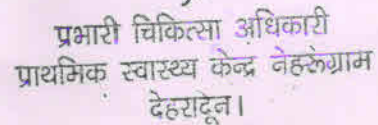 प्रभारी चिकित्सा अधिकारी
प्राथमिक स्वास्थ्य केन्द्र नेहरूंग्राम
देहरादून।